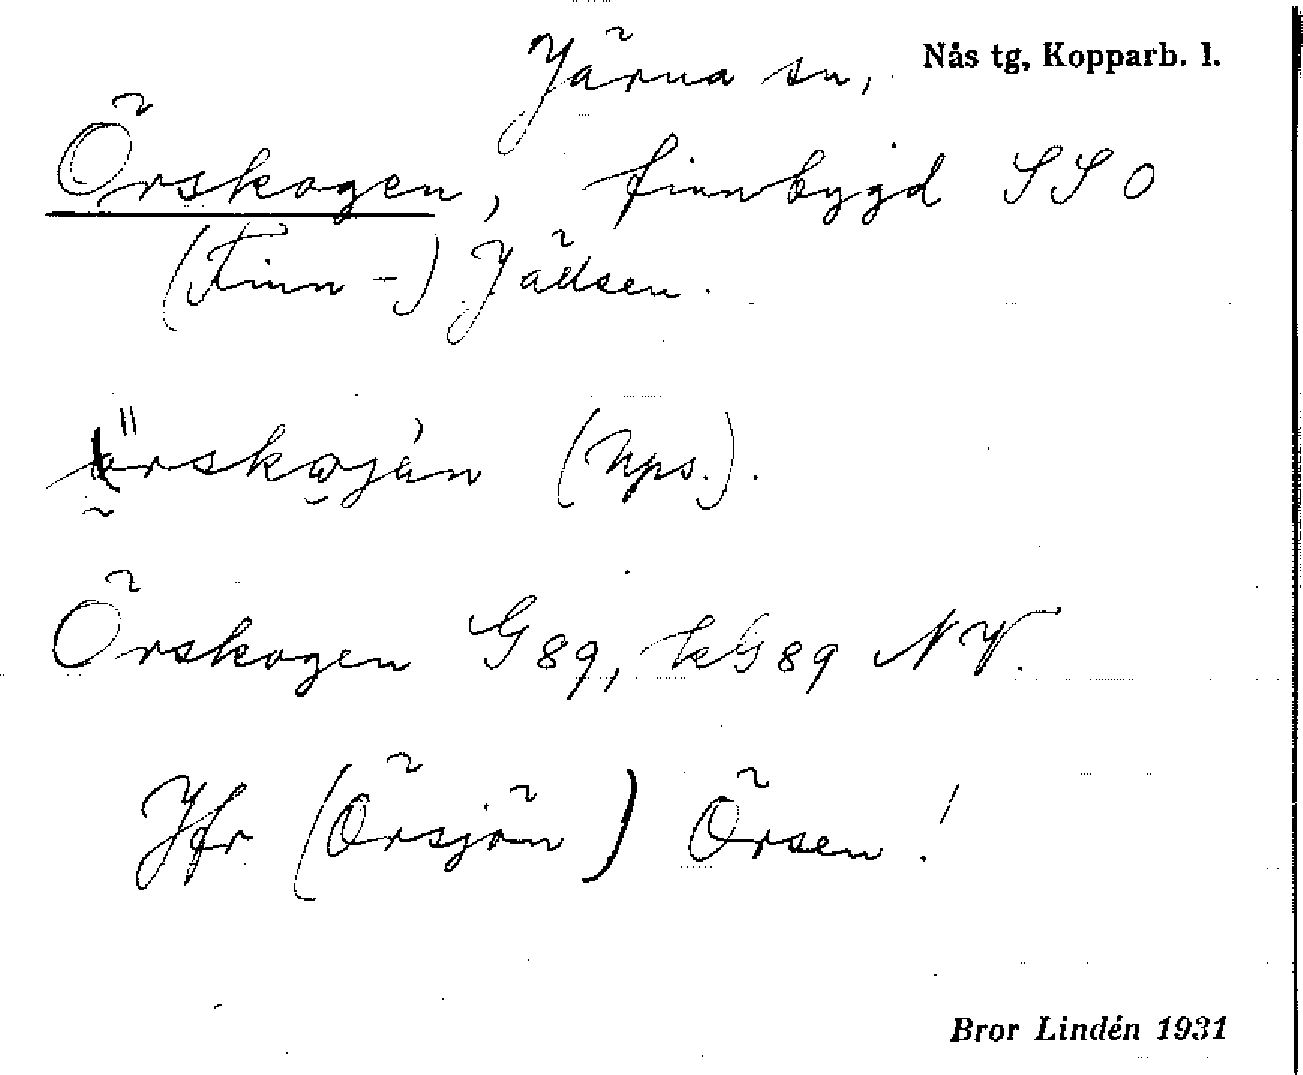 Järna sn, Nås tg, Kopparb. l.
Örskogen, finnbygd SSO
(Finn-) Jällsen.
(Nps.).
Örskogen G89, kG89 NV.
Jfr (Örsjön) Örsen!
Bror Lindén 1931